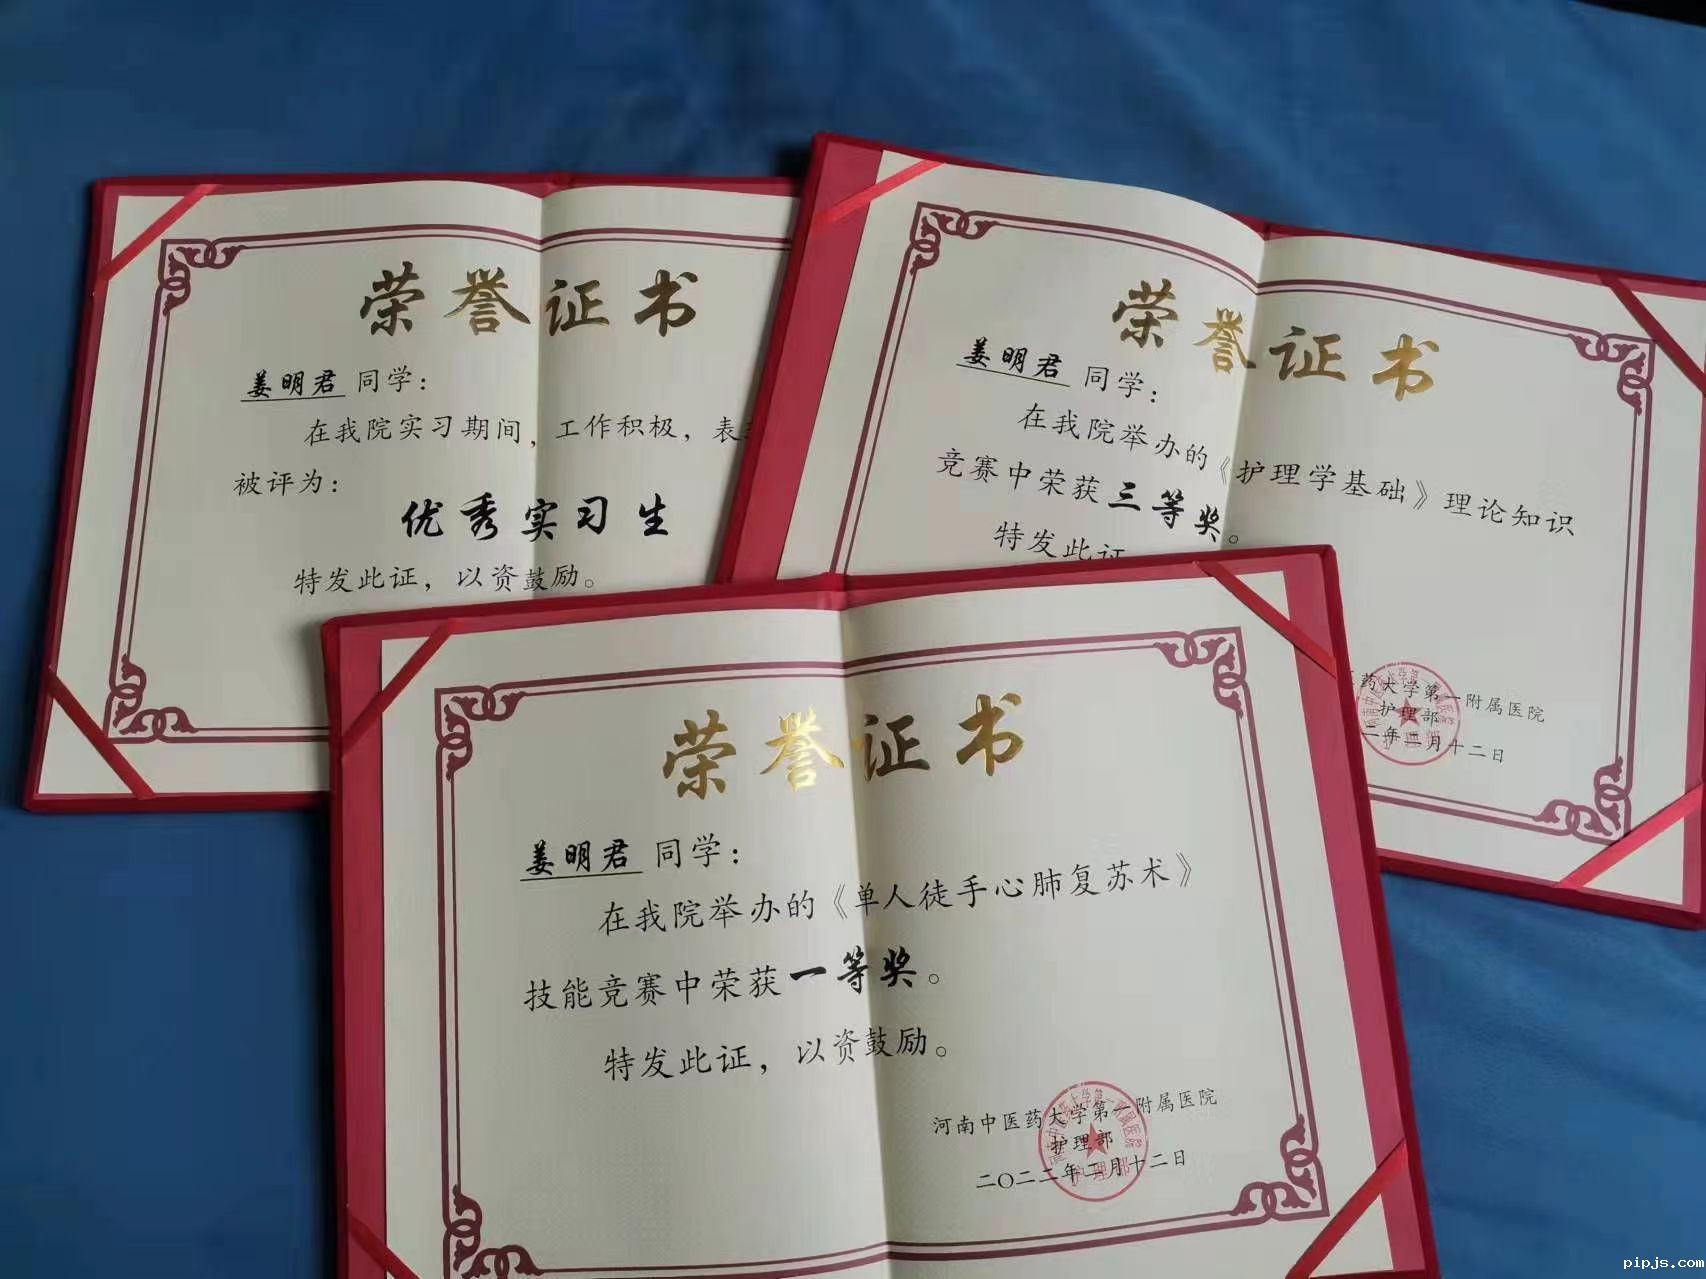 荣誉证书
姜明君 同学：
在我院实习期间，工作积极，表
被评为：
优秀实习生
特发此证，以资鼓励。
荣誉证书
姜明君 同学：
在我院举办的《护理学基础》理论知识
竞赛中荣获三等奖。
特发此证
药大学第一附属医院
护理部
二年二月十二日
荣誉证书
姜明君 同学：
在我院举办的《单人徒手心肺复苏术》
技能竞赛中荣获一等奖。
特发此证，以资鼓励。
河南中医药大学第一附属医院
护理部
二〇二二年二月十二日
pipjs.com